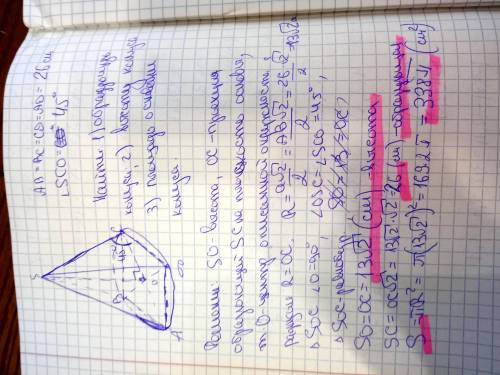 AB = BC = CD = AD = 26 см
∠SCO = 45°
Найти: 1) образующую
конуса; 2) высоту конуса
3) площадь основания
конуса
S
B
C
45°
O
A
D
Решение: SO - высота, OC - проекция
образующей SC на плоскость основания,
т. O - центр описанной окружности
радиусом R = OC. R = a√2/2 = AB√2/2 = 26√2/2 = 13√2
△SOC ∠O = 90°, ∠OSC = ∠SCO = 45°,
△SOC - равнобедр.
SO = OC = 13√2 (см) - высота
SC = OC√2 = 13√2·√2 = 26 (см) - образующая
S = πR² = π(13√2)² = 169·2π = 338π (см²)